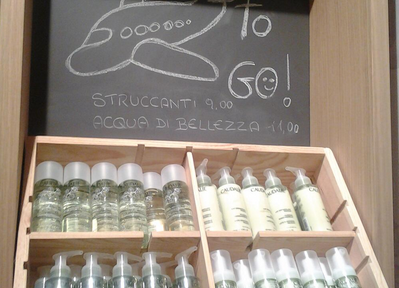 To
GO!
STRUCCANTI 9.00
ACQUA DI BELLEZZA 11,00
CAUDALIE